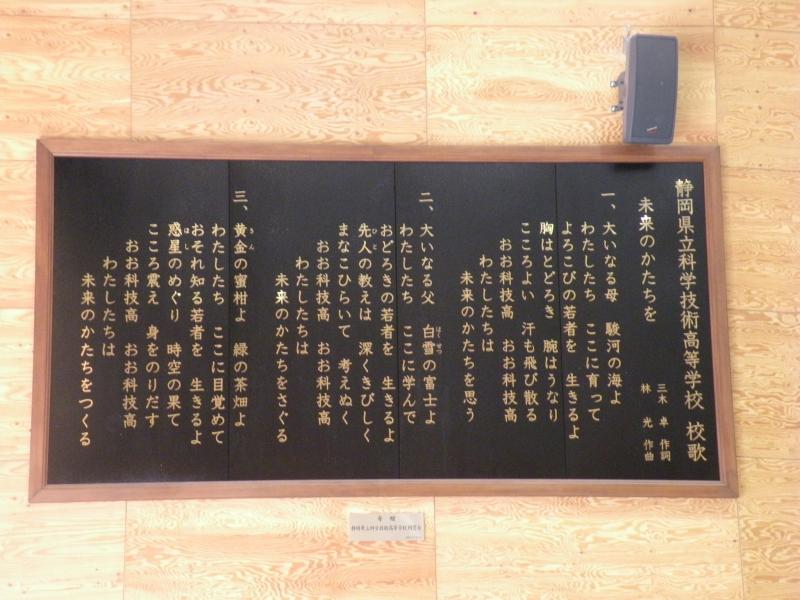 静岡県立科学技術高等学校 校歌
未来のかたちを
三木 卓 作詞
林 光 作曲
一、大いなる母 駿河の海よ
わたしたち ここに育って
よろこびの若者を 生きるよ
胸はとどろき 腕はうなり
こころよい 汗も飛び散る
おお科技高 おお科技高
わたしたちは
未来のかたちを思う
二、大いなる父 白雪の富士よ
はくせつ
わたしたち ここに学んで
おどろきの若者を 生きるよ
先人の教えは 深くきびしく
ひと
まなこひらいて 考えぬく
おお科技高 おお科技高
わたしたちは
未来のかたちをさぐる
三、黄金の蜜柑よ 緑の茶畑よ
きん
わたしたち ここに目覚めて
おそれ知る若者を 生きるよ
惑星のめぐり 時空の果て
ほし
こころ震え 身をのりだす
おお科技高 おお科技高
わたしたちは
未来のかたちをつくる
寄贈
静岡県立科学技術高等学校同窓会